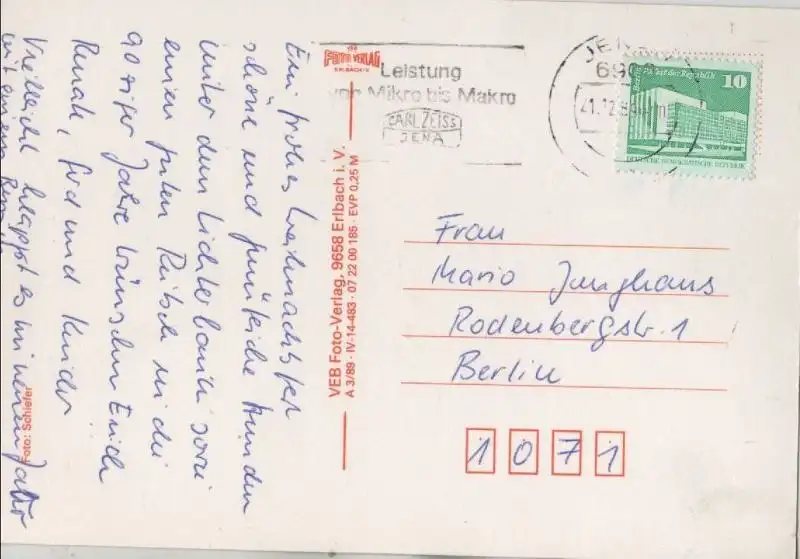 Ein frohes Weihnachtsfest
schöne und gemütliche Stunden
unter dem Lichterbaum sowie
einen guten Rutsch in die
90ziger Jahre wünschen Euch
Renate, Gerd und Kinder
Vielleicht klappt es im neuen Jahr
mit einem
Foto: Schiefer
FOTO VERLAG
ERLBACH/V.
VEB Foto-Verlag, 9658 Erlbach i. V.
A 3/89 · IV-14-483 · 07 22 00 185 · EVP 0,25 M
Leistung
von Mikro bis Makro
CARL ZEISS
JENA
10
Palast der Republik
DEUTSCHE DEMOKRATISCHE REPUBLIK
Frau
Mario Junghans
Rodenbergstr. 1
Berlin
1071